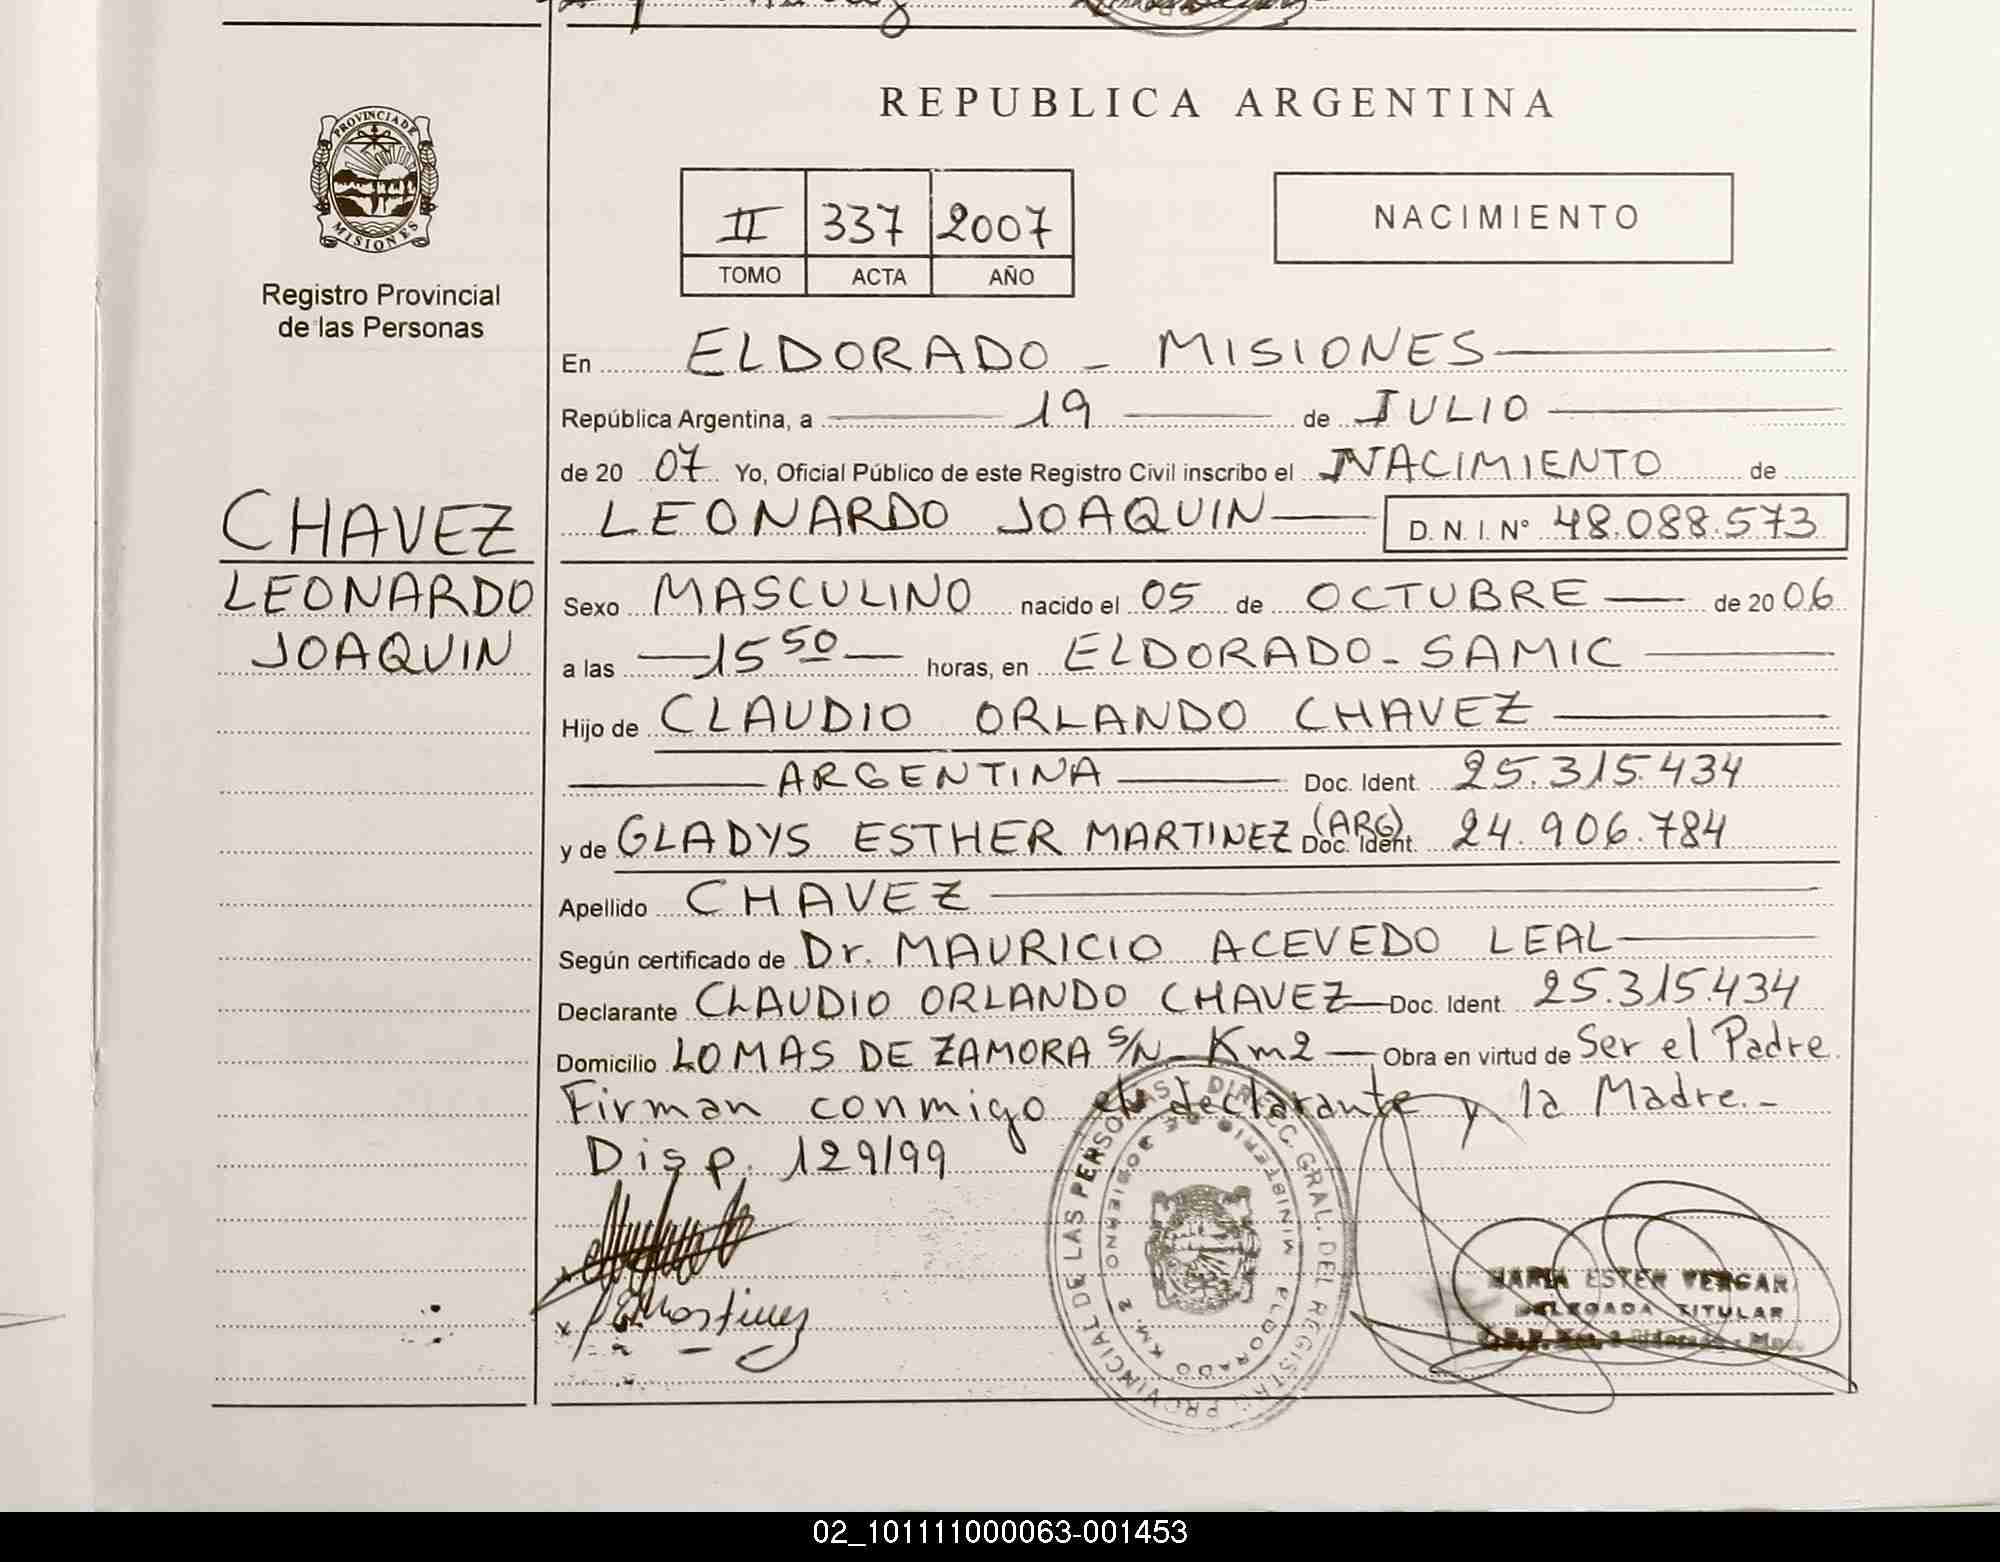 REPUBLICA ARGENTINA
PROVINCIA DE
MISIONES
Registro Provincial
de las Personas
II 337 2007
TOMO ACTA AÑO
NACIMIENTO
CHAVEZ
LEONARDO
JOAQUIN
En ELDORADO - MISIONES
República Argentina, a 19 de JULIO
de 20 07 Yo, Oficial Público de este Registro Civil inscribo el NACIMIENTO de
LEONARDO JOAQUIN D. N. I. N° 48.088.573
Sexo MASCULINO nacido el 05 de OCTUBRE de 20 06
a las 15 50 horas, en ELDORADO - SAMIC
Hijo de CLAUDIO ORLANDO CHAVEZ
ARGENTINA Doc. Ident. 25.315.434
y de GLADYS ESTHER MARTINEZ (ARG) Doc. Ident. 24.906.784
Apellido CHAVEZ
Según certificado de Dr. MAURICIO ACEVEDO LEAL
Declarante CLAUDIO ORLANDO CHAVEZ Doc. Ident. 25.315.434
Domicilio LOMAS DE ZAMORA S/N - Km2 Obra en virtud de Ser el Padre
Firman conmigo el declarante y la Madre.-
Disp. 129/99
x
x Martinez
DIRECC. GRAL. DEL REGISTRO PROVINCIAL DE LAS PERSONAS
MINISTERIO DE GOBIERNO
ELDORADO KM. 2
MARIA ESTER VERGARA
DELEGADA TITULAR
02_101111000063-001453